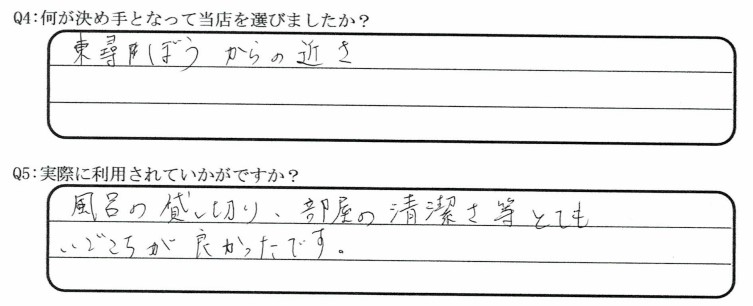 Q4:何が決め手となって当店を選びましたか？
東尋ぼう からの近さ
Q5:実際に利用されていかがですか？
風呂の貸し切り、部屋の清潔さ等とても
いごこちが良かったです。